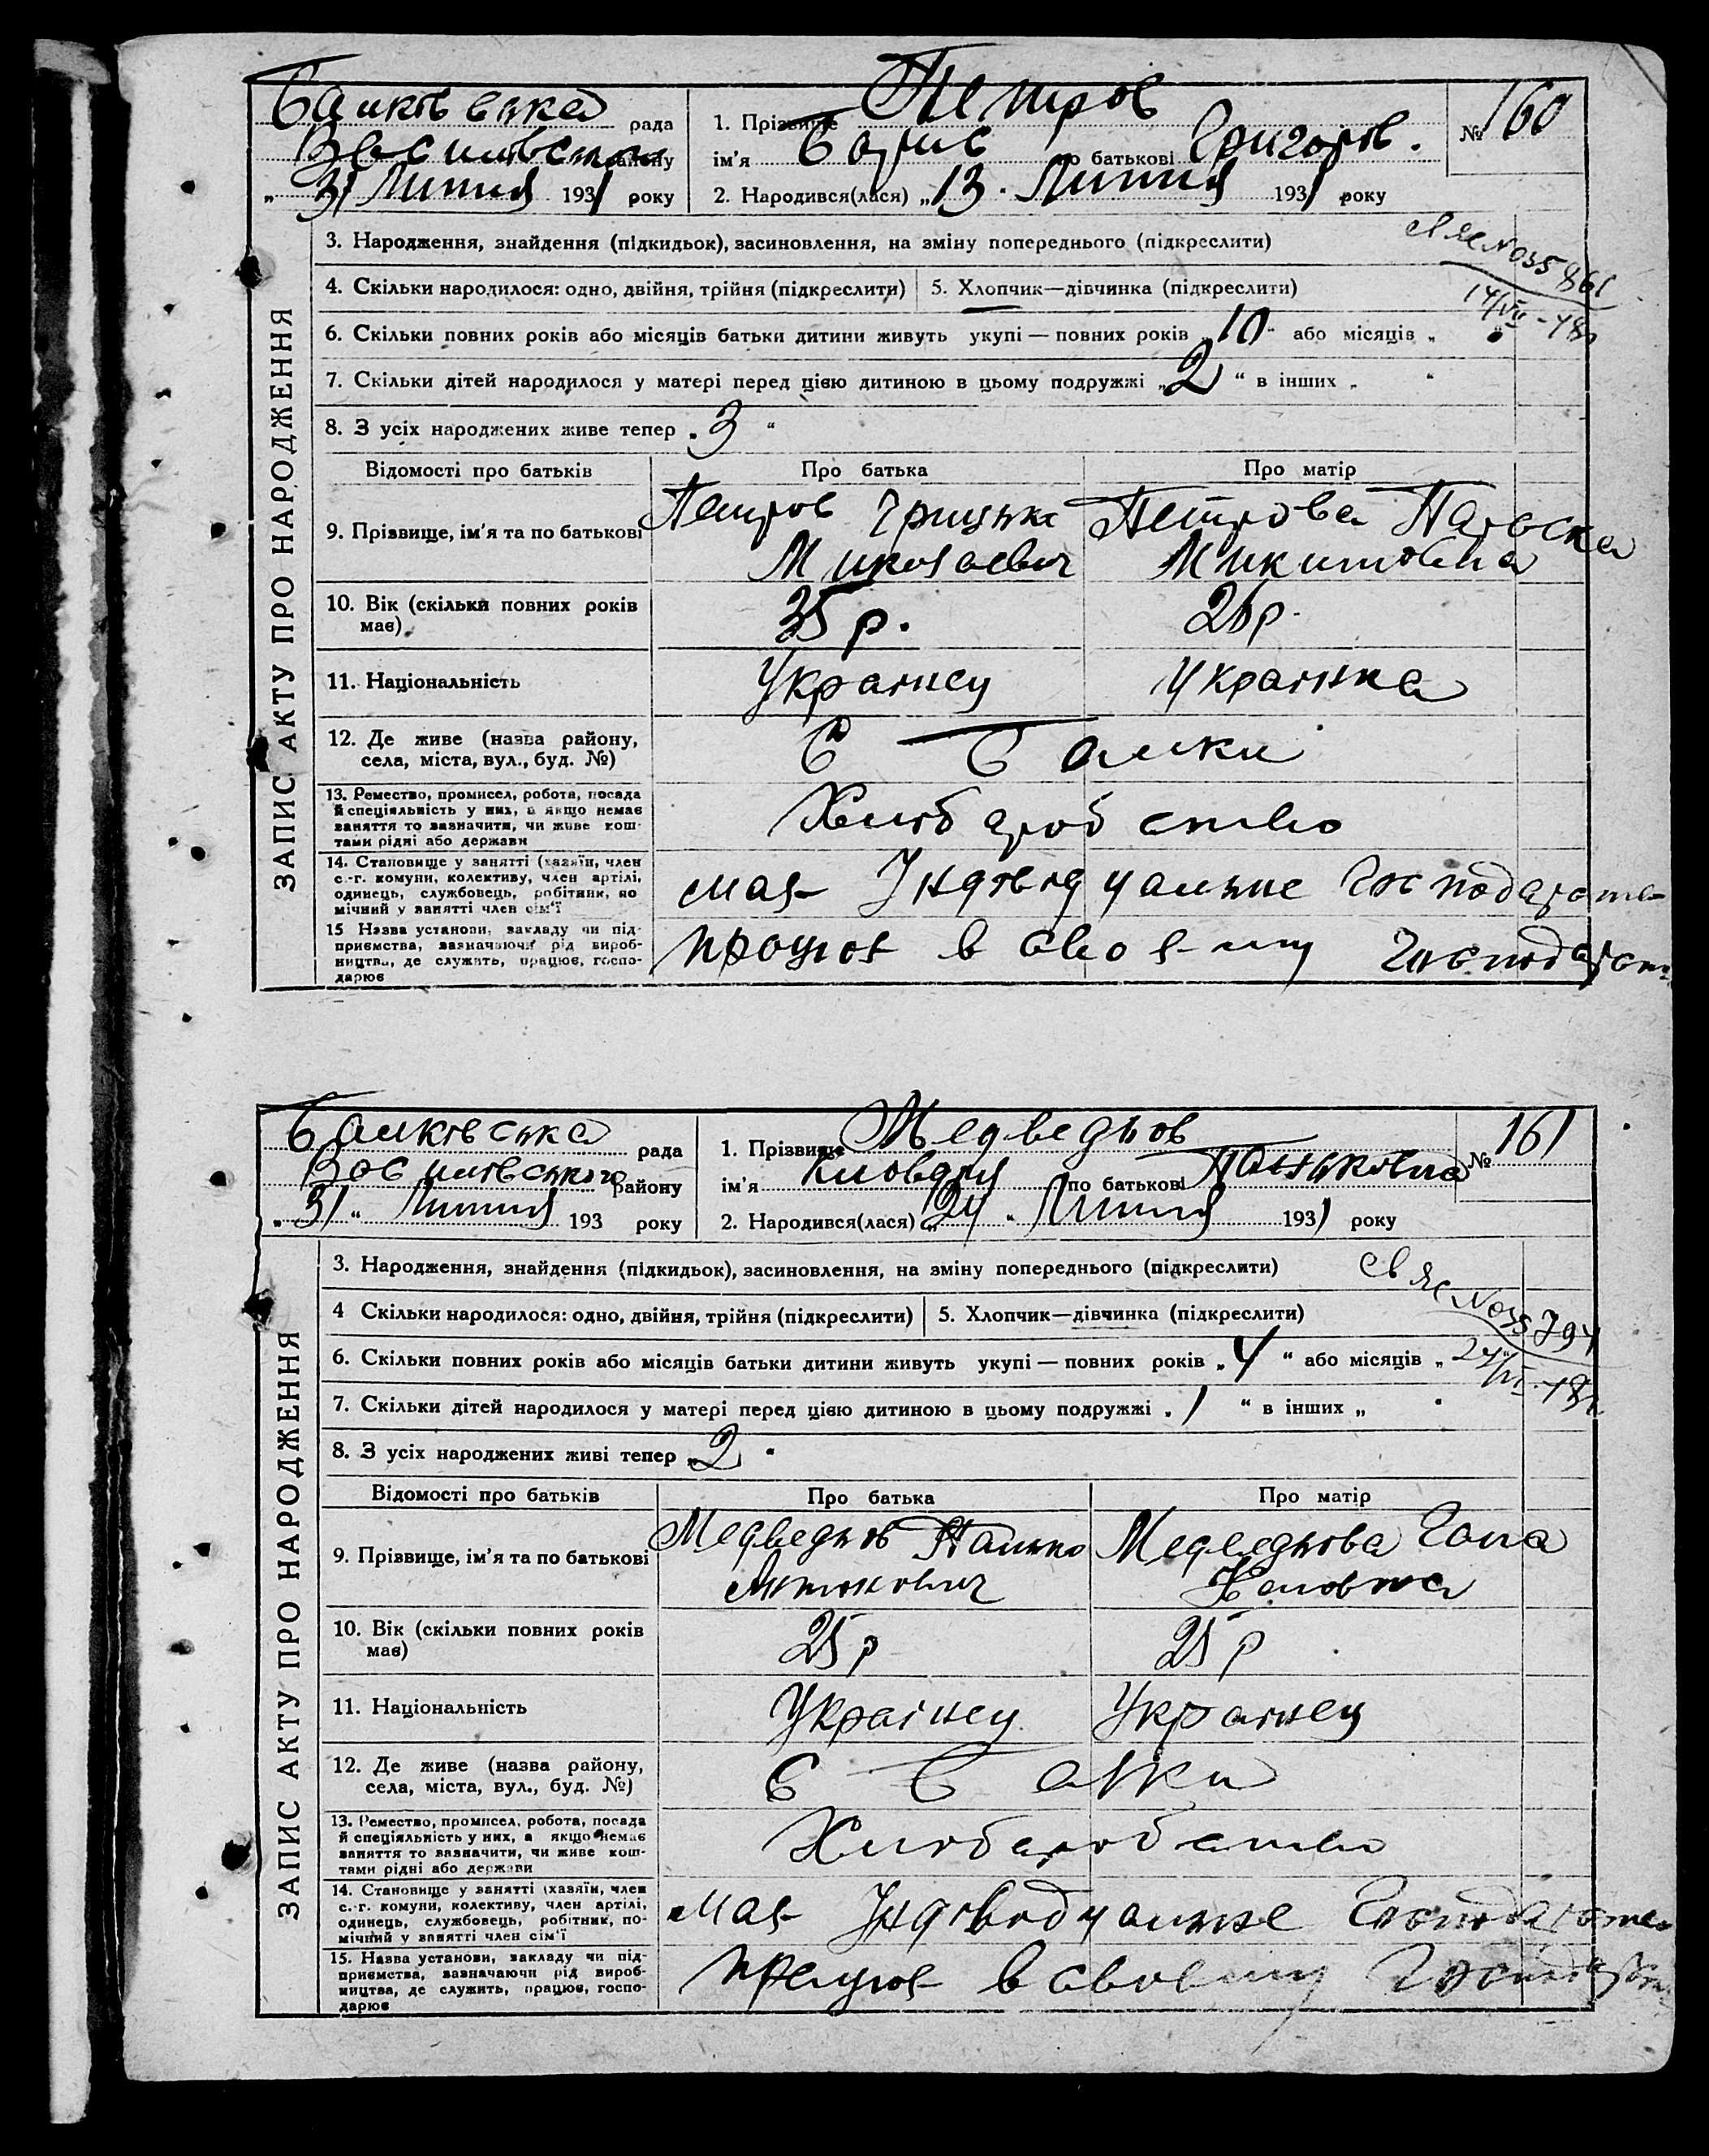 Балківська рада
Василівськ району
„ 31 Липня 1931 року
1. Прізвище Петров
ім'я Борис по батькові Григоров.
2. Народився(лася) „13. Липня 1931 року
№ 160
ЗАПИС АКТУ ПРО НАРОДЖЕННЯ
3. Народження, знайдення (підкидьок), засиновлення, на зміну попереднього (підкреслити)
4. Скільки народилося: одно, двійня, трійня (підкреслити)
5. Хлопчик—дівчинка (підкреслити)
6. Скільки повних років або місяців батьки дитини живуть укупі — повних років „10“ або місяців „ “
7. Скільки дітей народилося у матері перед цією дитиною в цьому подружжі „2“ в інших „ “
8. З усіх народжених живе тепер „3“
Відомості про батьків Про батька Про матір
9. Прізвище, ім'я та по батькові
Петров Грицько
Миколаевич
Петрова Параска
Микитовна
10. Вік (скільки повних років
має)
35 р.
11. Національність Українец Українка
12. Де живе (назва району,
села, міста, вул., буд. №)
С Балки
13. Ремество, промисел, робота, посада
й спеціяльність у них, а якщо немає
заняття то зазначити, чи живе кош-
тами рідні або держави
Хліборобство
14. Становище у занятті (хазяїн, член
с.-г. комуни, колективу, член артілі,
одинець, службовець, робітник, по
мічний у занятті член сім'ї
має Індівідуальне Господарство
15 Назва установи, закладу чи під-
приємства, зазначаючи рід вироб-
ництва, де служить, працює, госпо-
дарює
працює в своєму
Балківська рада
Василівського району
„ 31 “ Липня 193 року
1. Прізвище Медведьов
ім'я Клавдия по батькові Паньковна
2. Народився(лася) „24“ Липня 1931 року
№ 161
ЗАПИС АКТУ ПРО НАРОДЖЕННЯ
3. Народження, знайдення (підкидьок), засиновлення, на зміну попереднього (підкреслити)
4 Скільки народилося: одно, двійня, трійня (підкреслити)
5. Хлопчик—дівчинка (підкреслити)
6. Скільки повних років або місяців батьки дитини живуть укупі — повних років „4“ або місяців „ “
7. Скільки дітей народилося у матері перед цією дитиною в цьому подружжі „1“ в інших „ “
8. З усіх народжених живі тепер „2“
Відомості про батьків Про батька Про матір
9. Прізвище, ім'я та по батькові
Медведьов Панько
Медведьова Гана
10. Вік (скільки повних років
має)
25 р 25 р
11. Національність Українец Українец
12. Де живе (назва району,
села, міста, вул., буд. №)
С Балки
13. Ремество, промисел, робота, посада
й спеціяльність у них, а якщо немає
заняття то зазначити, чи живе кош-
тами рідні або держави
Хліборобство
14. Становище у занятті (хазяїн, член
с.-г. комуни, колективу, член артілі,
одинець, службовець, робітник, по-
мічний у занятті член сім'ї
має Індівідуальне Господарство
15. Назва установи, закладу чи під-
приємства, зазначаючи рід вироб-
ництва, де служить, працює, госпо-
дарює
працює в своєму